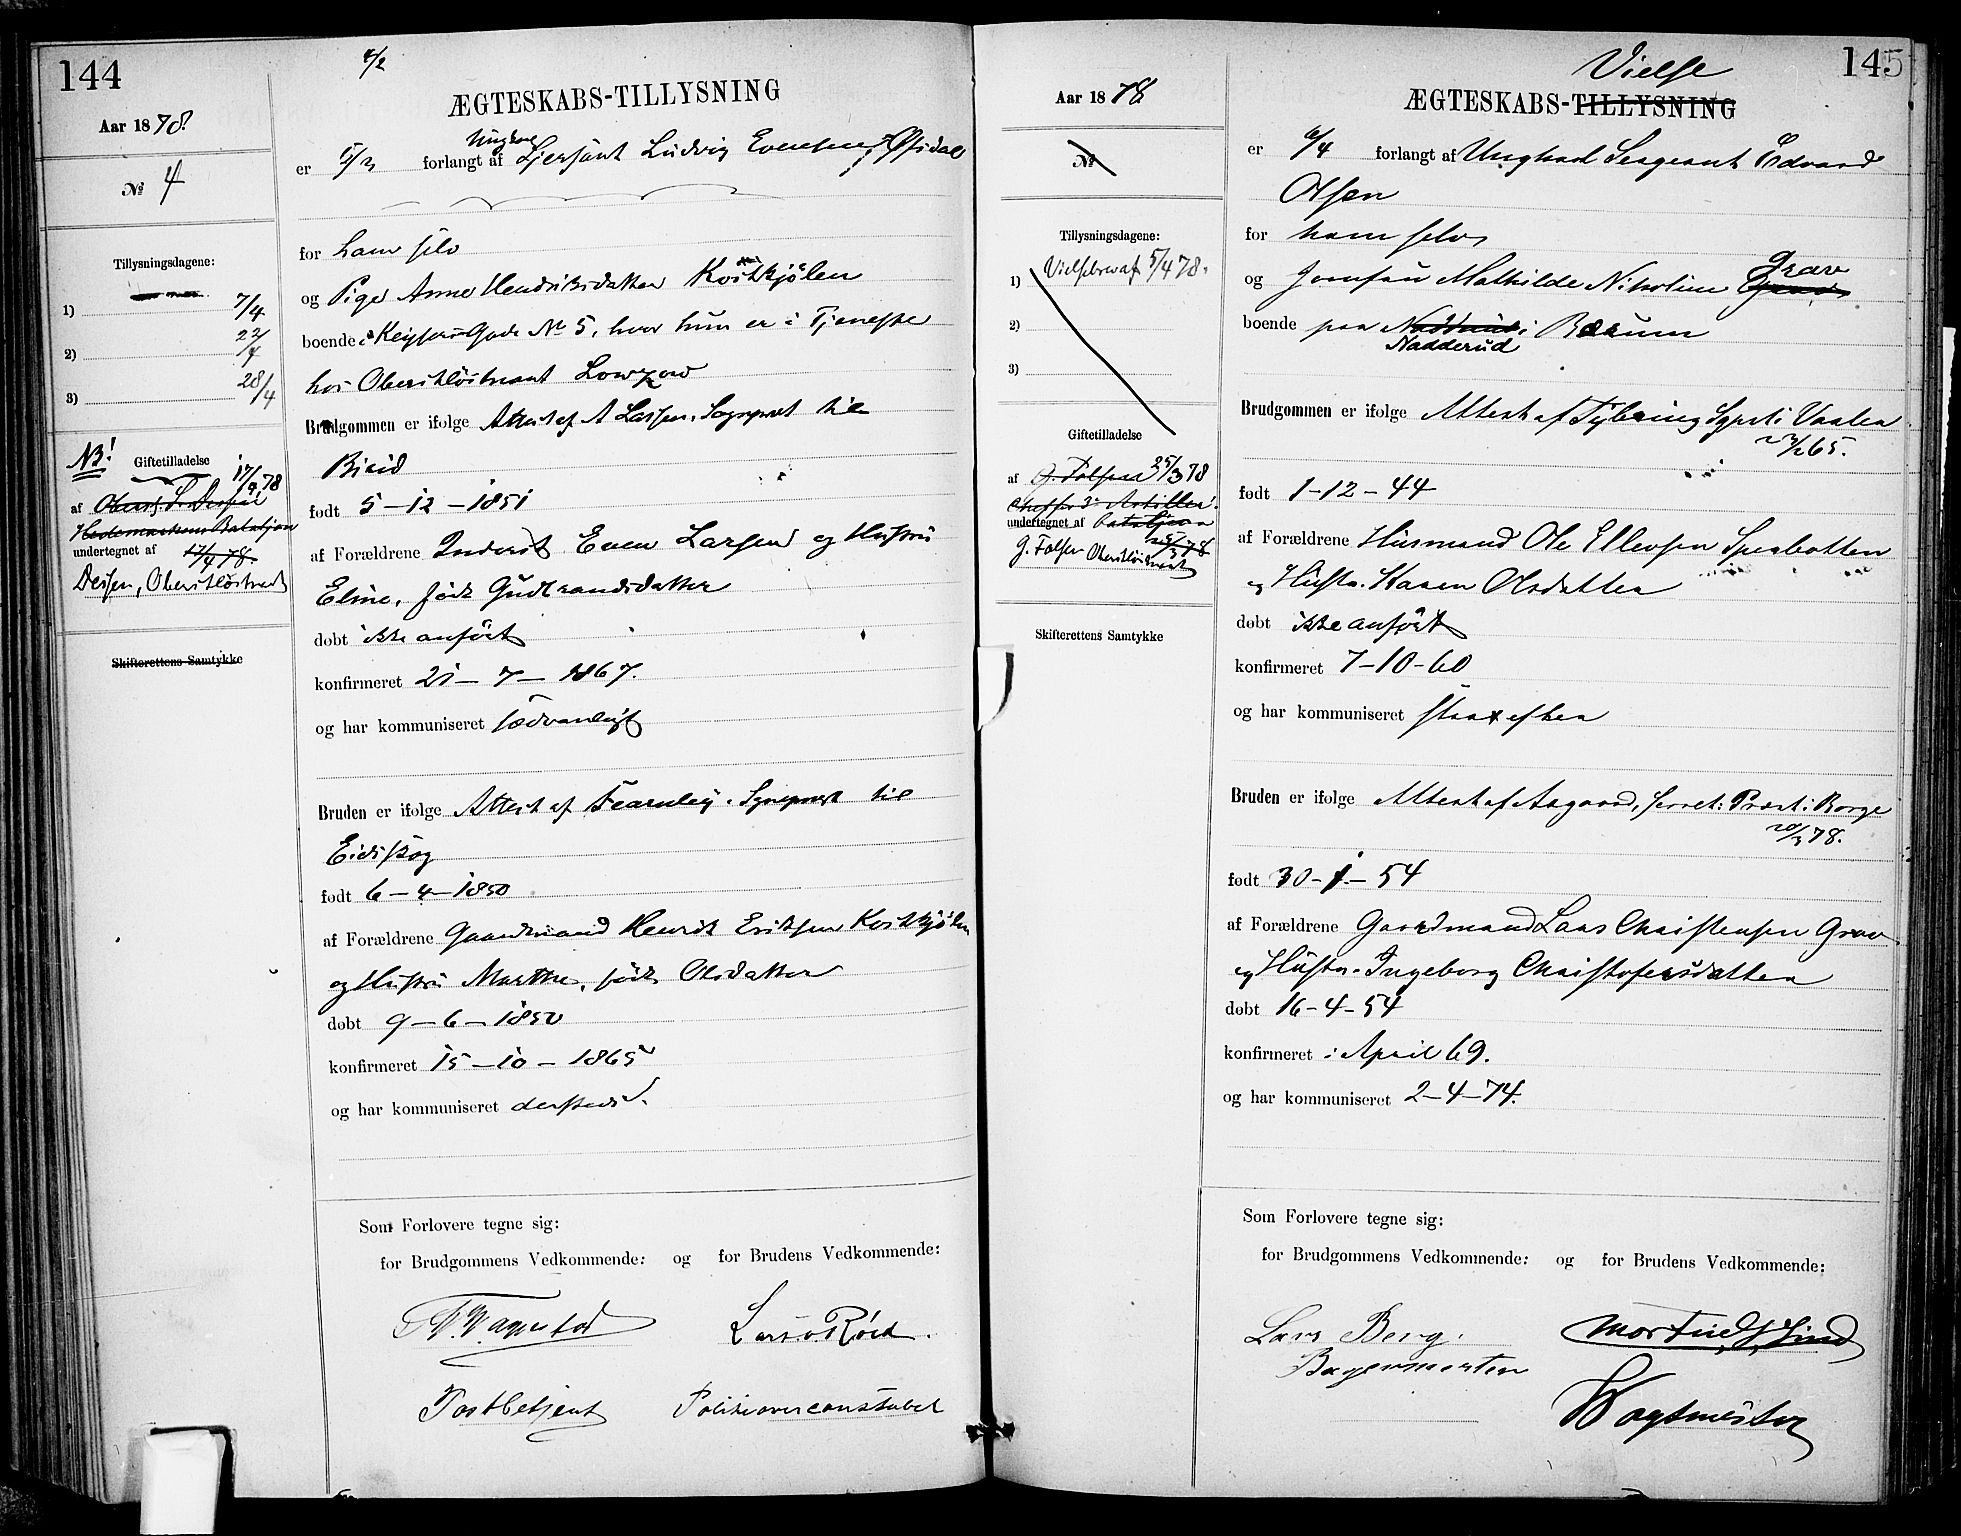 144
4/2
ÆGTESKABS-TILLYSNING
Aar 1878.
No 4
Ungkarl
er 5/2 forlangt af Serjant Ludvig Evensen
for ham selv
Tillysningsdagene:
og Pige Anne Hendriksdatter Kostkjölen
1) 7/4
boende i Keysersgade No 5, hvor hun er i Tjeneste
2) 22/4
hos Oberstlöitnant Lowzow
3) 28/4
Brudgommen er ifølge Attest af A Larsen, Sognepræst til
NB! Giftetilladelse 17/4 78
Birid
af Oberstl. Dessen
født 5-12-1851
Hedemarkens Bataljon
undertegnet af 17/4 78.
af Forældrene Inderst Even Larsen og Hustru
Dessen, Oberstlöitnant
Eline, født Gudbrandsdatter
døbt ikke anført
Skifterettens Samtykke
konfirmeret 21-7-1867.
og har kommuniseret sædvanligt
Bruden er ifølge Attest af Fearnley, Sognepræst til
Eidskog
født 6-4-1850
af Forældrene Gaardmand Henrik Eriksen Kostkjölen
og Hustru Marthe, född Olsdatter
døbt 9-6-1850
konfirmeret 15-10-1865
og har kommuniseret dersteds.
Som Forlovere tegne sig:
for Brudgommens Vedkommende: og for Brudens Vedkommende:
Lars O Röed.
Postbetjent Politioverconstabel
145
Vielse
ÆGTESKABS-TILLYSNING
Aar 1878
No
er 6/4 forlangt af Ungkarl Sergeant Edvard
Olsen
for ham selv
Tillysningsdagene:
og Jomfru Mathilde Nikoline Grav
1) Vielsbrev af 5/4 78.
boende paa Nadderud i Bærum
Nadderud
2)
3)
Brudgommen er ifølge Attest af Tybring Spræst i Vaaler
Giftetilladelse
af G. Folsen 25/3 78
født 1-12-44
Chef for 3die Artilleri
undertegnet af bataljon
G. Folsen Oberstlöitnant
af Forældrene Husmand Ole Ellevsen Sperbotten
og Hustr. Karen Olsdatter
døbt ikke anført
Skifterettens Samtykke
konfirmeret 7-10-60
og har kommuniseret strax efter
Bruden er ifølge Attest af Aagaard, Præst i Borge
20/3 78.
født 30-1-54
af Forældrene Gaardmand Lars Christensen Grav
og Hustr. Ingeborg Christofersdatter
døbt 16-4-54
konfirmeret i April 69.
og har kommuniseret 2-4-74.
Som Forlovere tegne sig:
for Brudgommens Vedkommende: og for Brudens Vedkommende:
Lars Berg.
Bagermester
Vagtmester